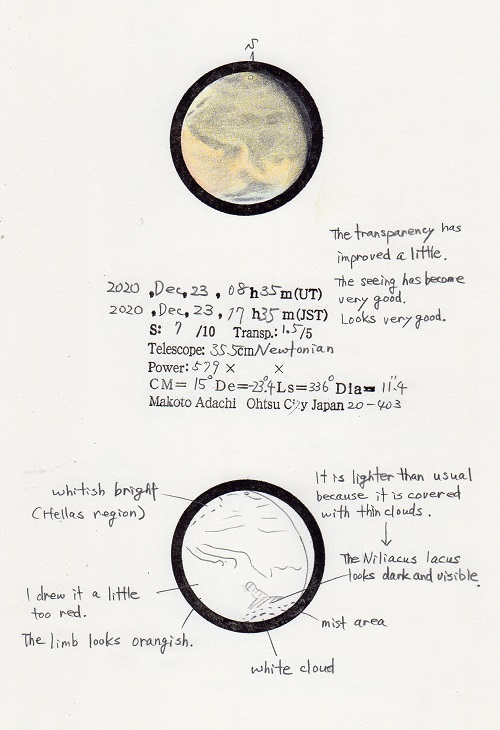 N
The transparency has
improved a little.
The seeing has become
very good.
Looks very good.
2020 , Dec, 23 , 08 h 35 m (UT)
2020 , Dec, 23 , 17 h 35 m (JST)
S: 7 /10 Transp.: 1.5/5
Telescope: 35.5cm Newtonian
Power: 579 × ×
CM= 15° De=-23.4 Ls=336° Dia= 11".4
Makoto Adachi Ohtsu City Japan 20-403
It is lighter than usual
because it is covered
with thin clouds.
whitish bright
(Hellas region)
The Niliacus lacus
looks dark and visible.
I drew it a little
too red.
The limb looks orangish.
mist area
white cloud